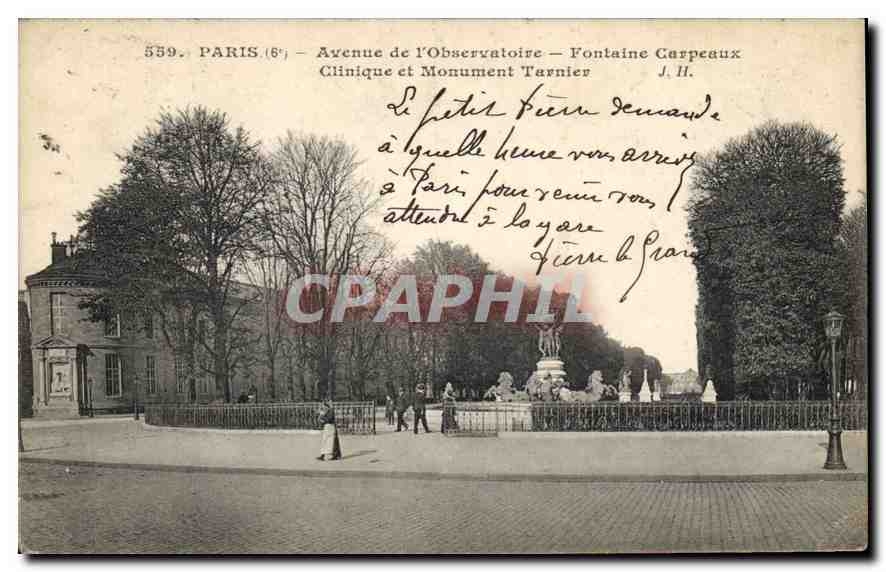 559. PARIS (6e) – Avenue de l'Observatoire – Fontaine Carpeaux
Clinique et Monument Tarnier J. H.
Le petit Pierre demande
à quelle heure vous arrivez
à Paris pour venir vous
attendre à la gare
Pierre le Grand
CPAPHIL